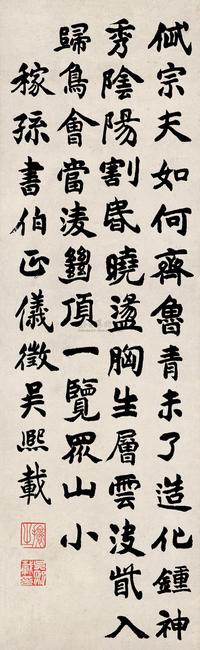 岱宗夫如何齊魯青未了造化鍾神
秀陰陽割昬曉盪胸生層雲決眥入
歸鳥會當淩絕頂一覽眾山小
稼孫書伯正儀徵吳熙載